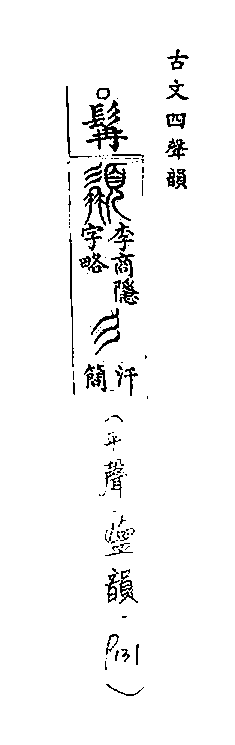 古文四聲韻
髯
李商隱
字略
汗
簡
(平聲鹽韻.P131)